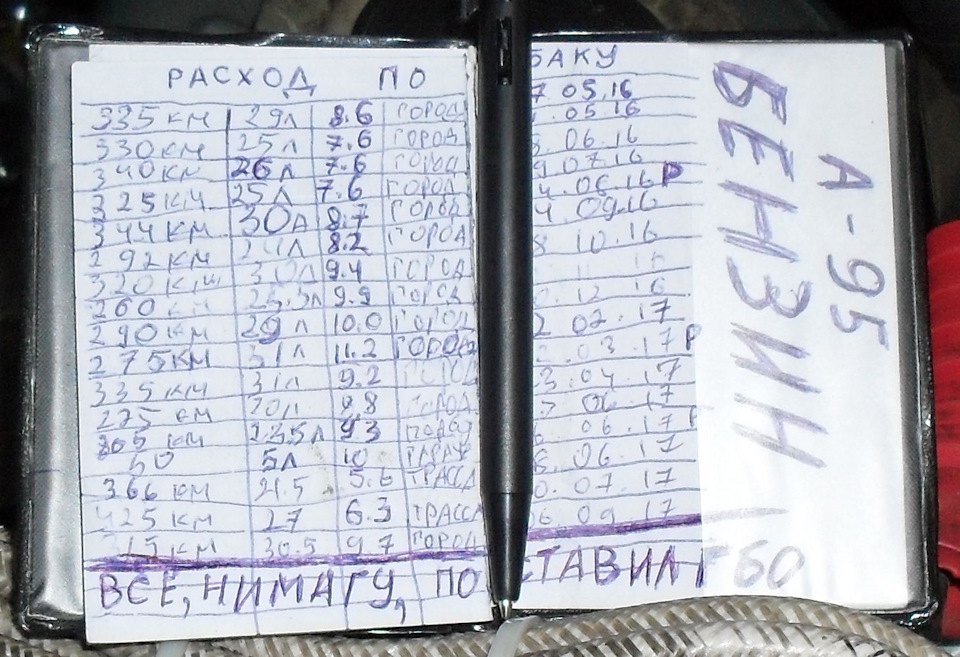 РАСХОД ПО БАКУ
335 КМ 29Л 8.6 ГОРОД 7 05.16
330 КМ 25Л 7.6 ГОРОД .05.16
340 КМ 26Л 7.6 ГОРОД 06.16
325 КМ 25Л 7.6 ГОРОД 07.16
344 КМ 30Л 8.7 ГОРОД 4.06.16 Р
292 КМ 24Л 8.2 ГОРОД 4 09.16
320 КМ 30Л 9.4 ГОРОД 8 10.16
260 КМ 25.5Л 9.9 ГОРОД 11 16
290 КМ 29Л 10.0 ГОРОД 12 16
275 КМ 31Л 11.2 ГОРОД 2 02.17
335 КМ 31Л 9.2 ГОРОД .03.17 Р
225 КМ 9.8 ГОРОД 3.04.17
305 КМ 9.3 ГОРОД 06.17
50 5Л 10 ГАРАЖ 06.17
366 КМ 21.5 5.6 ТРАССА .06.17
425 КМ 27 6.3 ТРАССА 0.07.17
315 КМ 30.5 9.7 ГОРОД 06 09 17
ВСЁ, НИМАГУ, ПОСТАВИЛ ГБО
БЕНЗИН
А-95